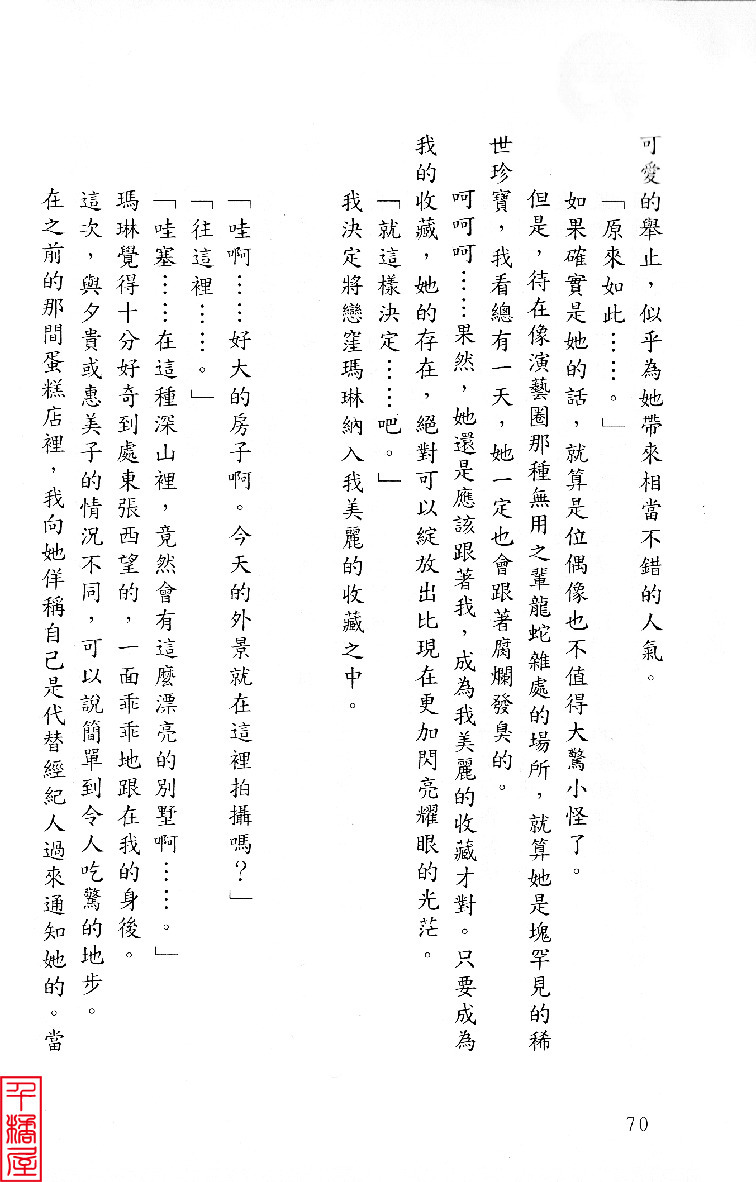 可愛的舉止，似乎為她帶來相當不錯的人氣。
「原來如此……。」
如果確實是她的話，就算是位偶像也不值得大驚小怪了。
但是，待在像演藝圈那種無用之輩龍蛇雜處的場所，就算她是塊罕見的稀
世珍寶，我看總有一天，她一定也會跟著腐爛發臭的。
呵呵呵……果然，她還是應該跟著我，成為我美麗的收藏才對。只要成為
我的收藏，她的存在，絕對可以綻放出比現在更加閃亮耀眼的光茫。
「就這樣決定……吧。」
我決定將戀窪瑪琳納入我美麗的收藏之中。
「哇啊……好大的房子啊。今天的外景就在這裡拍攝嗎？」
「往這裡……。」
「哇塞……在這種深山裡，竟然會有這麼漂亮的別墅啊……。」
瑪琳覺得十分好奇到處東張西望的，一面乖乖地跟在我的身後。
這次，與夕貴或惠美子的情況不同，可以說簡單到令人吃驚的地步。
在之前的那間蛋糕店裡，我向她佯稱自己是代替經紀人過來通知她的。當
70
千橘屋